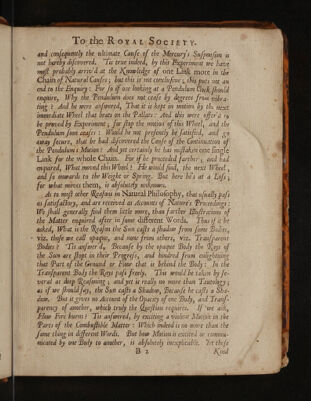 To the ROYAL SOCIETY.
and consequently the ultimate Cause of the Mercury's Suspension is
not hereby discovered. 'Tis true indeed, by this Experiment we have
most probably arriv'd at the Knowledge of one Link more in the
Chain of Natural Causes; but this is not conclusive; this puts not an
end to the Enquiry: For so if one looking at a Pendulum Clock should
enquire, Why the Pendulum does not cease by degrees from vibra-
ting? And he were answered, That it is kept in motion by the next
immediate Wheel that beats on the Pallats: And this were offer'd to
be proved by Experiment; for stop the motion of this Wheel, and the
Pendulum soon ceases: Would he not presently be satisfied, and go
away secure, that he had discovered the Cause of the Continuation of
the Pendulum's Motion? And yet certainly he has mistaken one single
Link for the whole Chain. For if he proceeded further, and had
enquired, What moved this Wheel? He would find, the next Wheel;
and so onwards to the Weight or Spring. But here he's at a Loss;
for what moves them, is absolutely unknown.
As to most other Reasons in Natural Philosophy, that usually pass
as satisfactory, and are received as Accounts of Nature's Proceedings:
We shall generally find them little more, than further Illustrations of
the Matter enquired after in some different Words. Thus if it be
asked, What is the Reason the Sun casts a shadow from some Bodies,
viz. those we call opaque, and none from others, viz. Transparent
Bodies? 'Tis answer'd, Because by the opaque Body the Rays of
the Sun are stopt in their Progress, and hindred from enlightning
that Part of the Ground or Plane that is behind the Body: In the
Transparent Body the Rays pass freely. This would be taken by se-
veral as deep Reasoning; and yet is really no more than Tautology;
as if we should say, the Sun casts a Shadow, Because he casts a Sha-
dow. But it gives no Account of the Opacity of one Body, and Trans-
parency of another, which truly the Question requires. If we ask,
How Fire burns? 'Tis answered, by exciting a violent Motion in the
Parts of the Combustible Matter: Which indeed is no more than the
same thing in different Words. But how Motion is excited or commu-
nicated by one Body to another, is absolutely inexplicable. Yet these
B 2 Kind